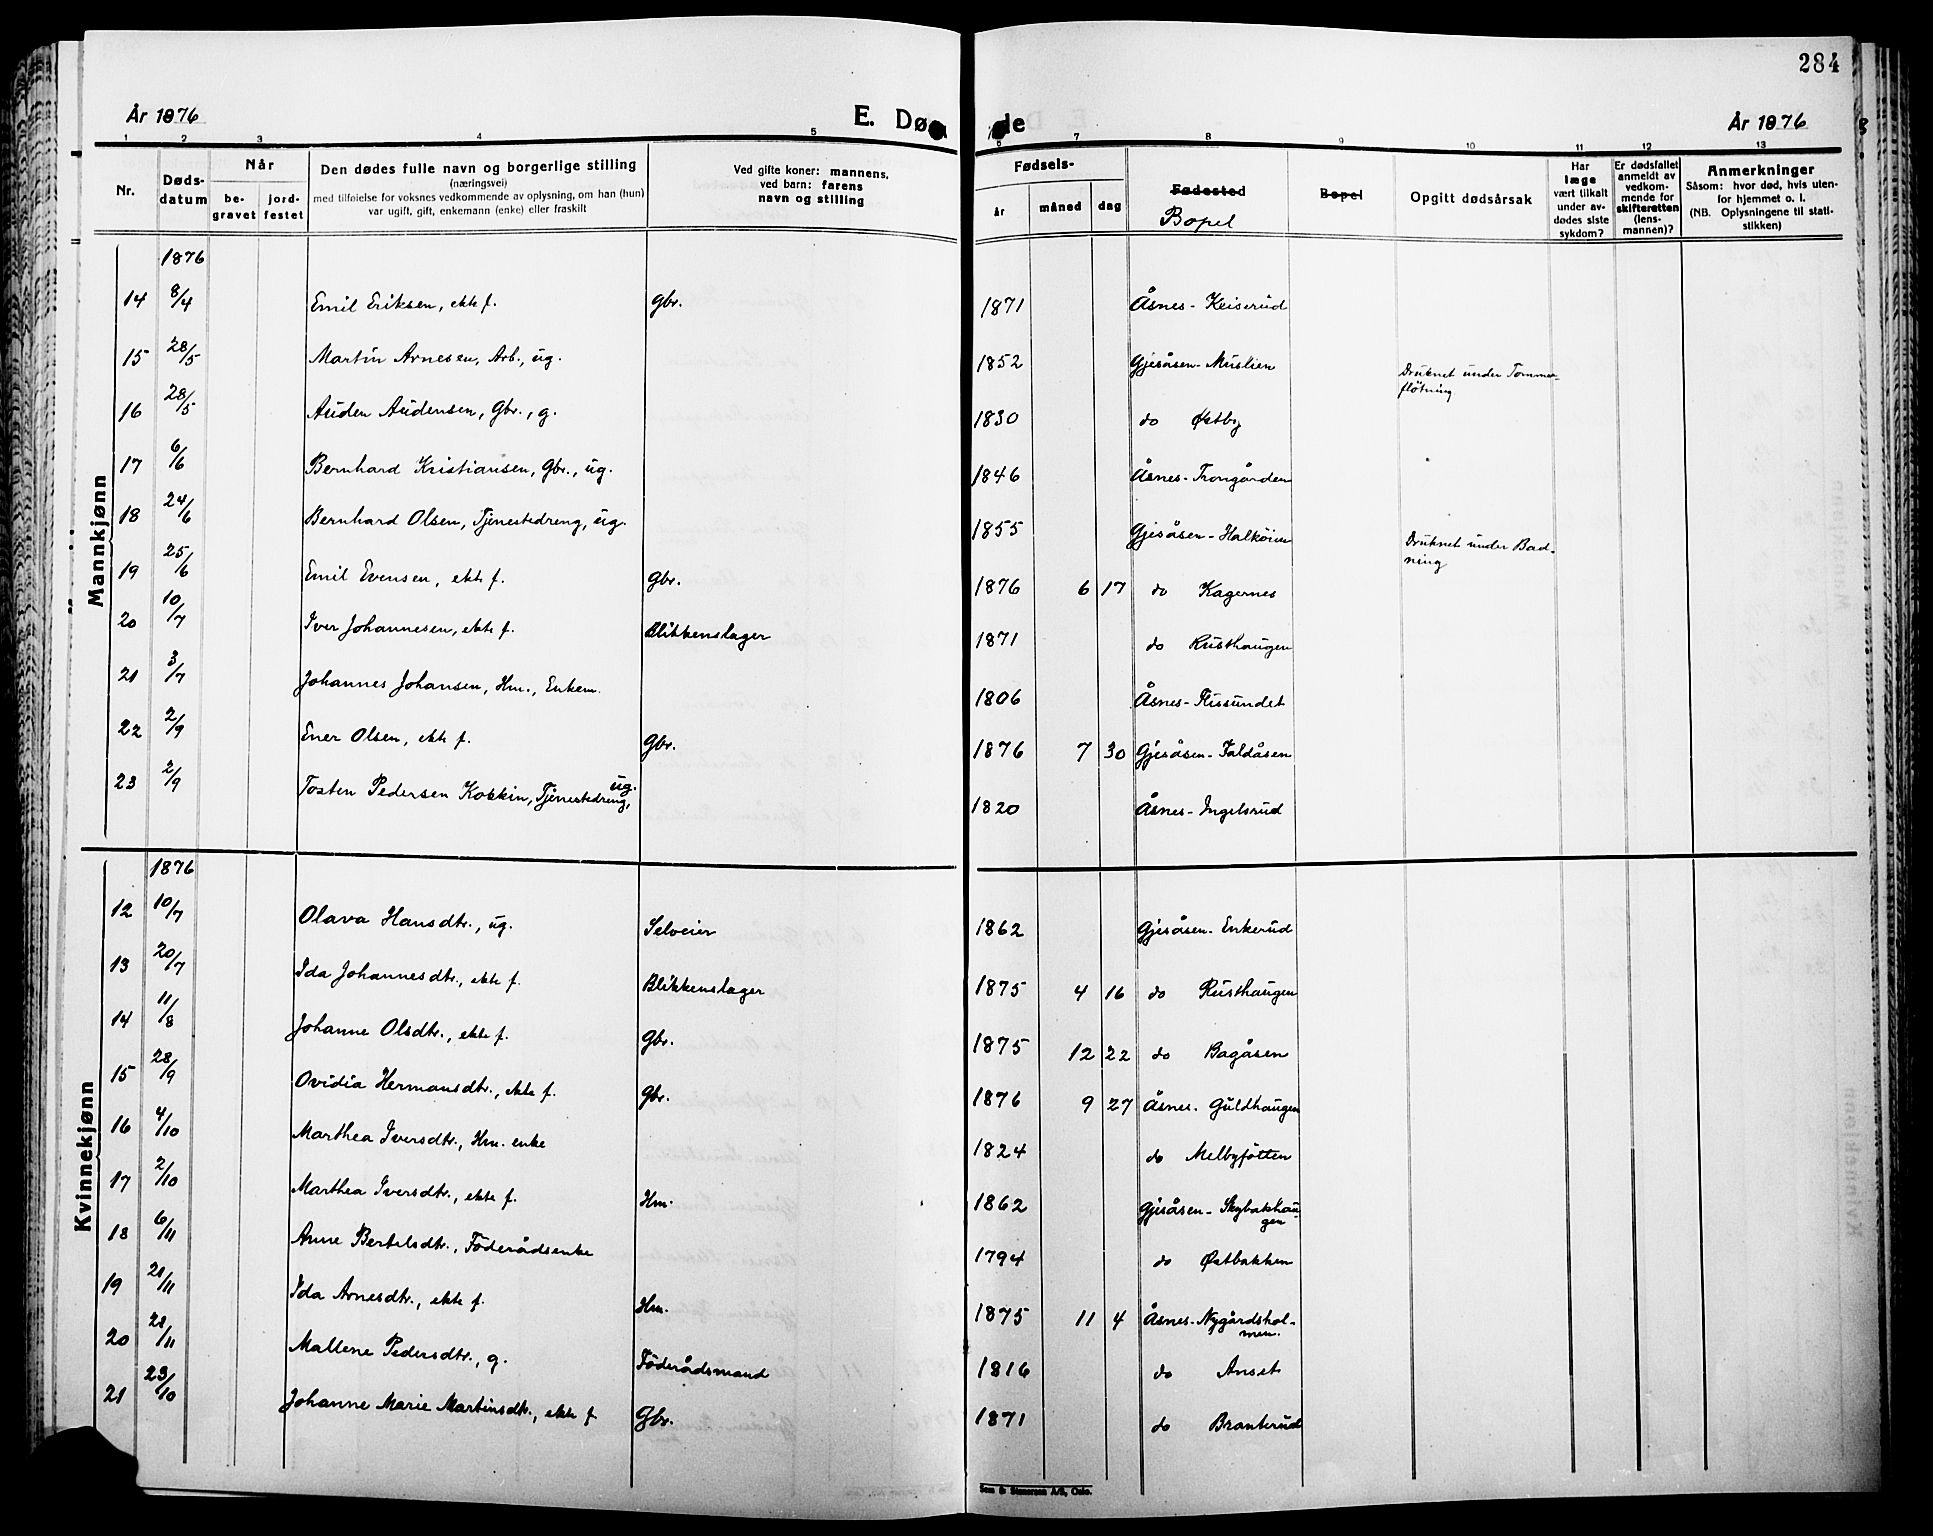 284
År 1876 E. Dø de År 1876
1 2 3 4 5 6 7 8 9 10 11 12 13
Nr. Døds-datum Når be-gravet jord-festet Den dødes fulle navn og borgerlige stilling (næringsvei) med tilføielse for voksnes vedkommende av oplysning, om han (hun) var ugift, gift, enkemann (enke) eller fraskilt Ved gifte koner: mannens, ved barn: farens navn og stilling Fødsels- år måned dag Fødested Bopel Bopel Opgitt dødsårsak Har læge vært tilkalt under av-dødes siste sykdom? Er dødsfallet anmeldt av vedkom-mende for skifteretten (lens-mannen)? Anmerkninger Såsom: hvor død, hvis uten-for hjemmet o. l. (NB. Oplysningene til stati-stikken)
Mannkjønn
1876
14 8/4 Emil Eriksen, ekte f. Gbr. 1871 Åsnes - Keiserud
15 28/5 Martin Arnesen, Arb., ug. 1852 Gjesåsen - Muslien Druknet under Tommer-
fløtning
16 28/5 Auden Audensen, Gbr., g. 1830 do Østby
17 6/6 Bernhard Kristiansen, Gbr., ug. 1846 Åsnes - Trongården
18 24/6 Bernhard Olsen, Tjenestedreng, ug. 1855 Gjesåsen - Halköien Druknet under Bad-
ning
19 25/6 Emil Evensen, ekte f. Gbr. 1876 6 17 do Kagernes
20 10/7 Iver Johannesen, ekte f. Blikkenslager 1871 do Rusthaugen
21 3/7 Johannes Johansen, Hm., Enkem. 1806 Åsnes - Flissundet
22 2/9 Ener Olsen, ekte f. Gbr. 1876 7 30 Gjesåsen - Faldåsen
23 2/9 Tosten Pedersen Kokkin, Tjenestedreng, ug. 1820 Åsnes - Ingelsrud
Kvinnekjønn
1876
12 10/7 Olava Hansdtr., ug. Selveier 1862 Gjesåsen - Enkerud
13 20/7 Ida Johannesdtr., ekte f. Blikkenslager 1875 4 16 do Rusthaugen
14 11/8 Johanne Olsdtr., ekte f. Gbr. 1875 12 22 do Bagåsen
15 28/9 Ovidia Hermansdtr., ekte f. Gbr. 1876 9 27 Åsnes - Guldhaugen
16 4/10 Marthea Iversdtr., Hm. enke 1824 do Melbyfötten
17 2/10 Marthea Iversdtr., ekte f. Hm. 1862 Gjesåsen - Skybakhau-
gen
18 6/11 Anne Bertelsdtr., Föderådsenke 1794 do Østbakken
19 21/11 Ida Arnesdtr., ekte f. Hm. 1875 11 4 Åsnes - Nygårdshol-
men.
20 21/11 Mallene Pedersdtr., g. Föderådsmand 1816 do Anset
21 23/10 Johanne Marie Martinsdtr., ekte f Gbr. 1871 do Branterud
Sem & Stenersen A/S, Oslo.